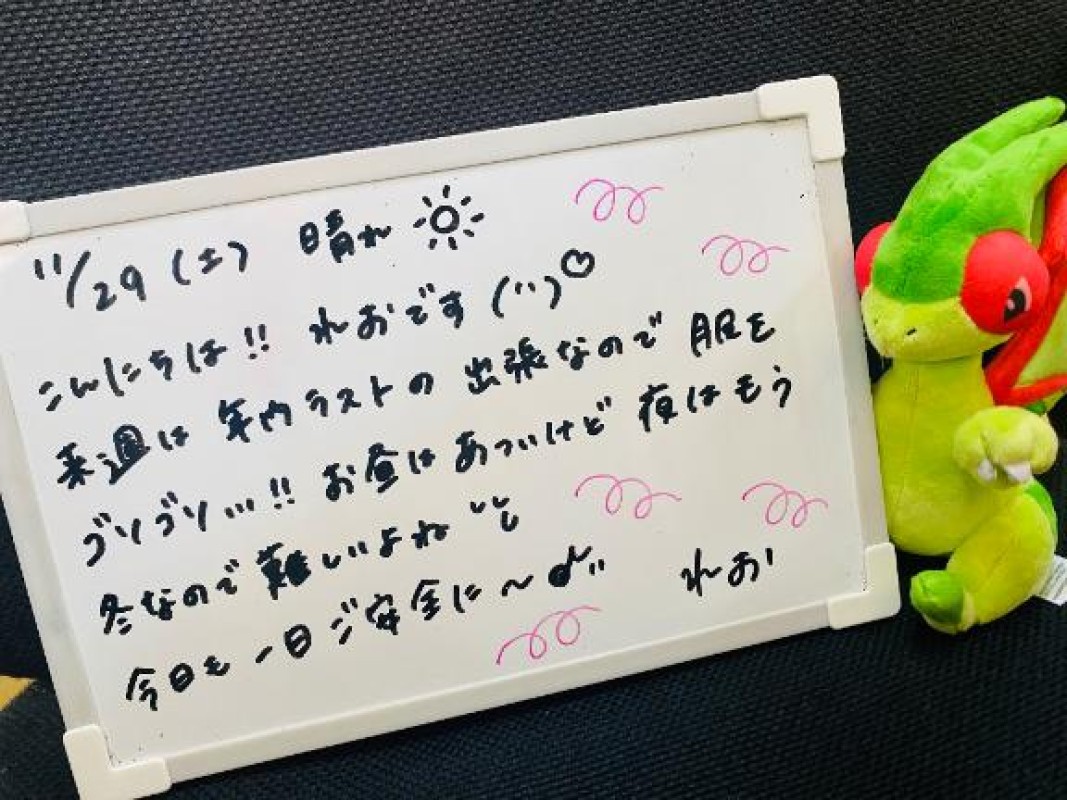 11/29(土) 晴れ
こんにちは!! れおです(¨)♡
来週は年内ラストの出張なので服を
ゴソゴソ…!! お昼はあついけど夜はもう
冬なので難しいよね
今日も一日ご安全に〜 れお